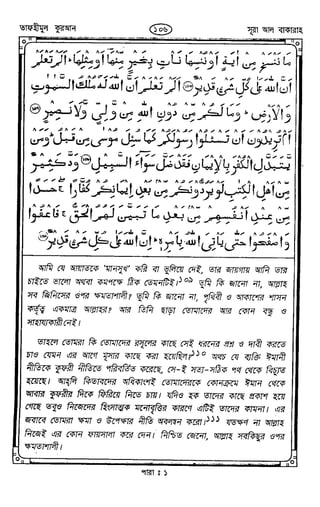 তাফহীমুল কুরআন
১০৬
সূরা আল বাকারাহ
مَا نَنْسَخْ مِنْ اٰيَةٍ اَوْ نُنْسِهَا نَاْتِ بِخَيْرٍ مِّنْهَآ اَوْ مِثْلِهَا ؕ اَلَمْ تَعْلَمْ
اَنَّ اللّٰهَ عَلٰى كُلِّ شَيْءٍ قَدِيْرٌ اَلَمْ تَعْلَمْ اَنَّ اللّٰهَ لَهٗ مُلْكُ السَّمٰوٰتِ
وَالْاَرْضِ ؕ وَمَا لَكُمْ مِّنْ دُوْنِ اللّٰهِ مِنْ وَّلِيٍّ وَّلَا نَصِيْرٍ
اَمْ تُرِيْدُوْنَ اَنْ تَسْئَلُوْا رَسُوْلَكُمْ كَمَا سُئِلَ مُوْسٰى مِنْ قَبْلُ ؕ وَمَنْ
يَّتَبَدَّلِ الْكُفْرَ بِالْاِيْمَانِ فَقَدْ ضَلَّ سَوَآءَ السَّبِيْلِ وَدَّ كَثِيْرٌ
مِّنْ اَهْلِ الْكِتٰبِ لَوْ يَرُدُّوْنَكُمْ مِّنْۢ بَعْدِ اِيْمَانِكُمْ كُفَّارًا ۚ حَسَدًا
مِّنْ عِنْدِ اَنْفُسِهِمْ مِّنْۢ بَعْدِ مَا تَبَيَّنَ لَهُمُ الْحَقُّ ۚ فَاعْفُوْا
وَاصْفَحُوْا حَتّٰى يَاْتِيَ اللّٰهُ بِاَمْرِهٖ ؕ اِنَّ اللّٰهَ عَلٰى كُلِّ شَيْءٍ قَدِيْرٌ
আমি যে আয়াতকে 'মানসুখ' করি বা ভুলিয়ে দেই, তার জায়গায় আনি তার
চাইতে ভালো অথবা কমপক্ষে ঠিক তেমনটিই।১০৯ তুমি কি জানো না, আল্লাহ
সব জিনিসের ওপর ক্ষমতাশালী? তুমি কি জানো না, পৃথিবী ও আকাশের শাসন
কর্তৃত্ব একমাত্র আল্লাহর? আর তিনি ছাড়া তোমাদের আর কোন বন্ধু ও
সাহায্যকারী নেই।
তাহলে তোমরা কি তোমাদের রসূলের কাছে সেই ধরনের প্রশ্ন ও দাবী করতে
চাও যেমন এর আগে মূসার কাছে করা হয়েছিল?১১০ অথচ যে ব্যক্তি ঈমানী
নীতিকে কুফরী নীতিতে পরিবর্তিত করেছে, সে-ই সত্য-সঠিক পথ থেকে বিচ্যুত
হয়েছে। আহ্‌লি কিতাবদের অধিকাংশই তোমাদেরকে কোনক্রমে ঈমান থেকে
আবার কুফরীর দিকে ফিরিয়ে নিতে চায়। যদিও হক তাদের কাছে প্রকাশ হয়ে
গেছে তবুও নিজেদের হিংসাত্মক মনোবৃত্তির কারণে এটিই তাদের কামনা। এর
জবাবে তোমরা ক্ষমা ও উপেক্ষার নীতি অবলম্বন করো।১১১ যতক্ষণ না আল্লাহ
নিজেই এর কোন ফায়সালা করে দেন। নিশ্চিত জেনো, আল্লাহ সবকিছুর ওপর
ক্ষমতাশালী।
পারা : ১